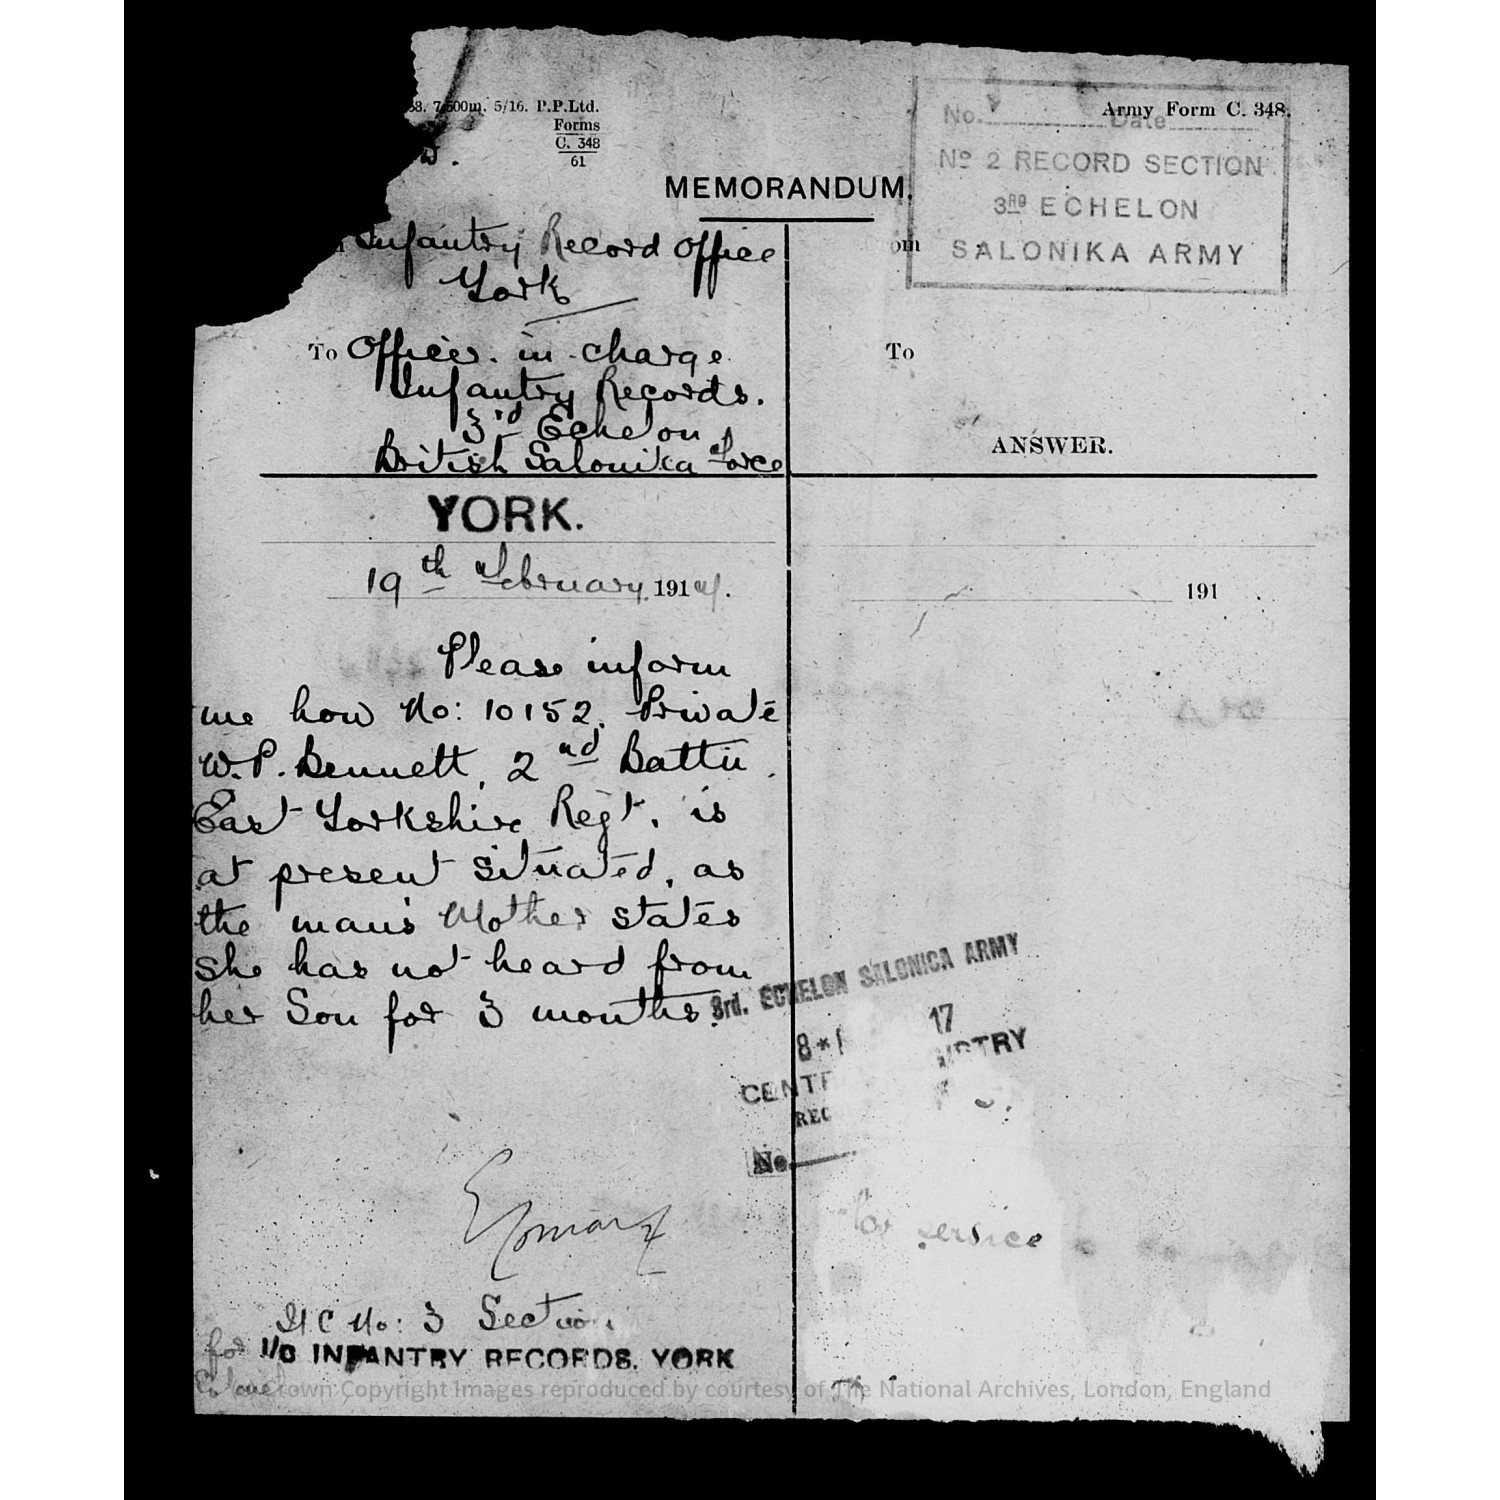 7,500m. 5/16. P.P.Ltd.
Forms
C. 348
61
Army Form C. 348.
No. Date
Nº 2 RECORD SECTION
3RD ECHELON
SALONIKA ARMY
MEMORANDUM.
Infantry Record Office
York
To Officer. in charge
Infantry Records.
3rd Echelon
British Salonika Force
To
ANSWER.
YORK.
19th February 191
191
Please inform
me how No: 10152. Private
W.P. Bennett, 2nd Battn.
East Yorkshire Regt. is
at present situated, as
the man's Mother states
she has not heard from
her Son for 3 months.
3rd. ECHELON SALONICA ARMY
8 * 17
No.
for service
No: 3 Section
for I/C INFANTRY RECORDS. YORK
Crown Copyright Images reproduced by courtesy of The National Archives, London, England